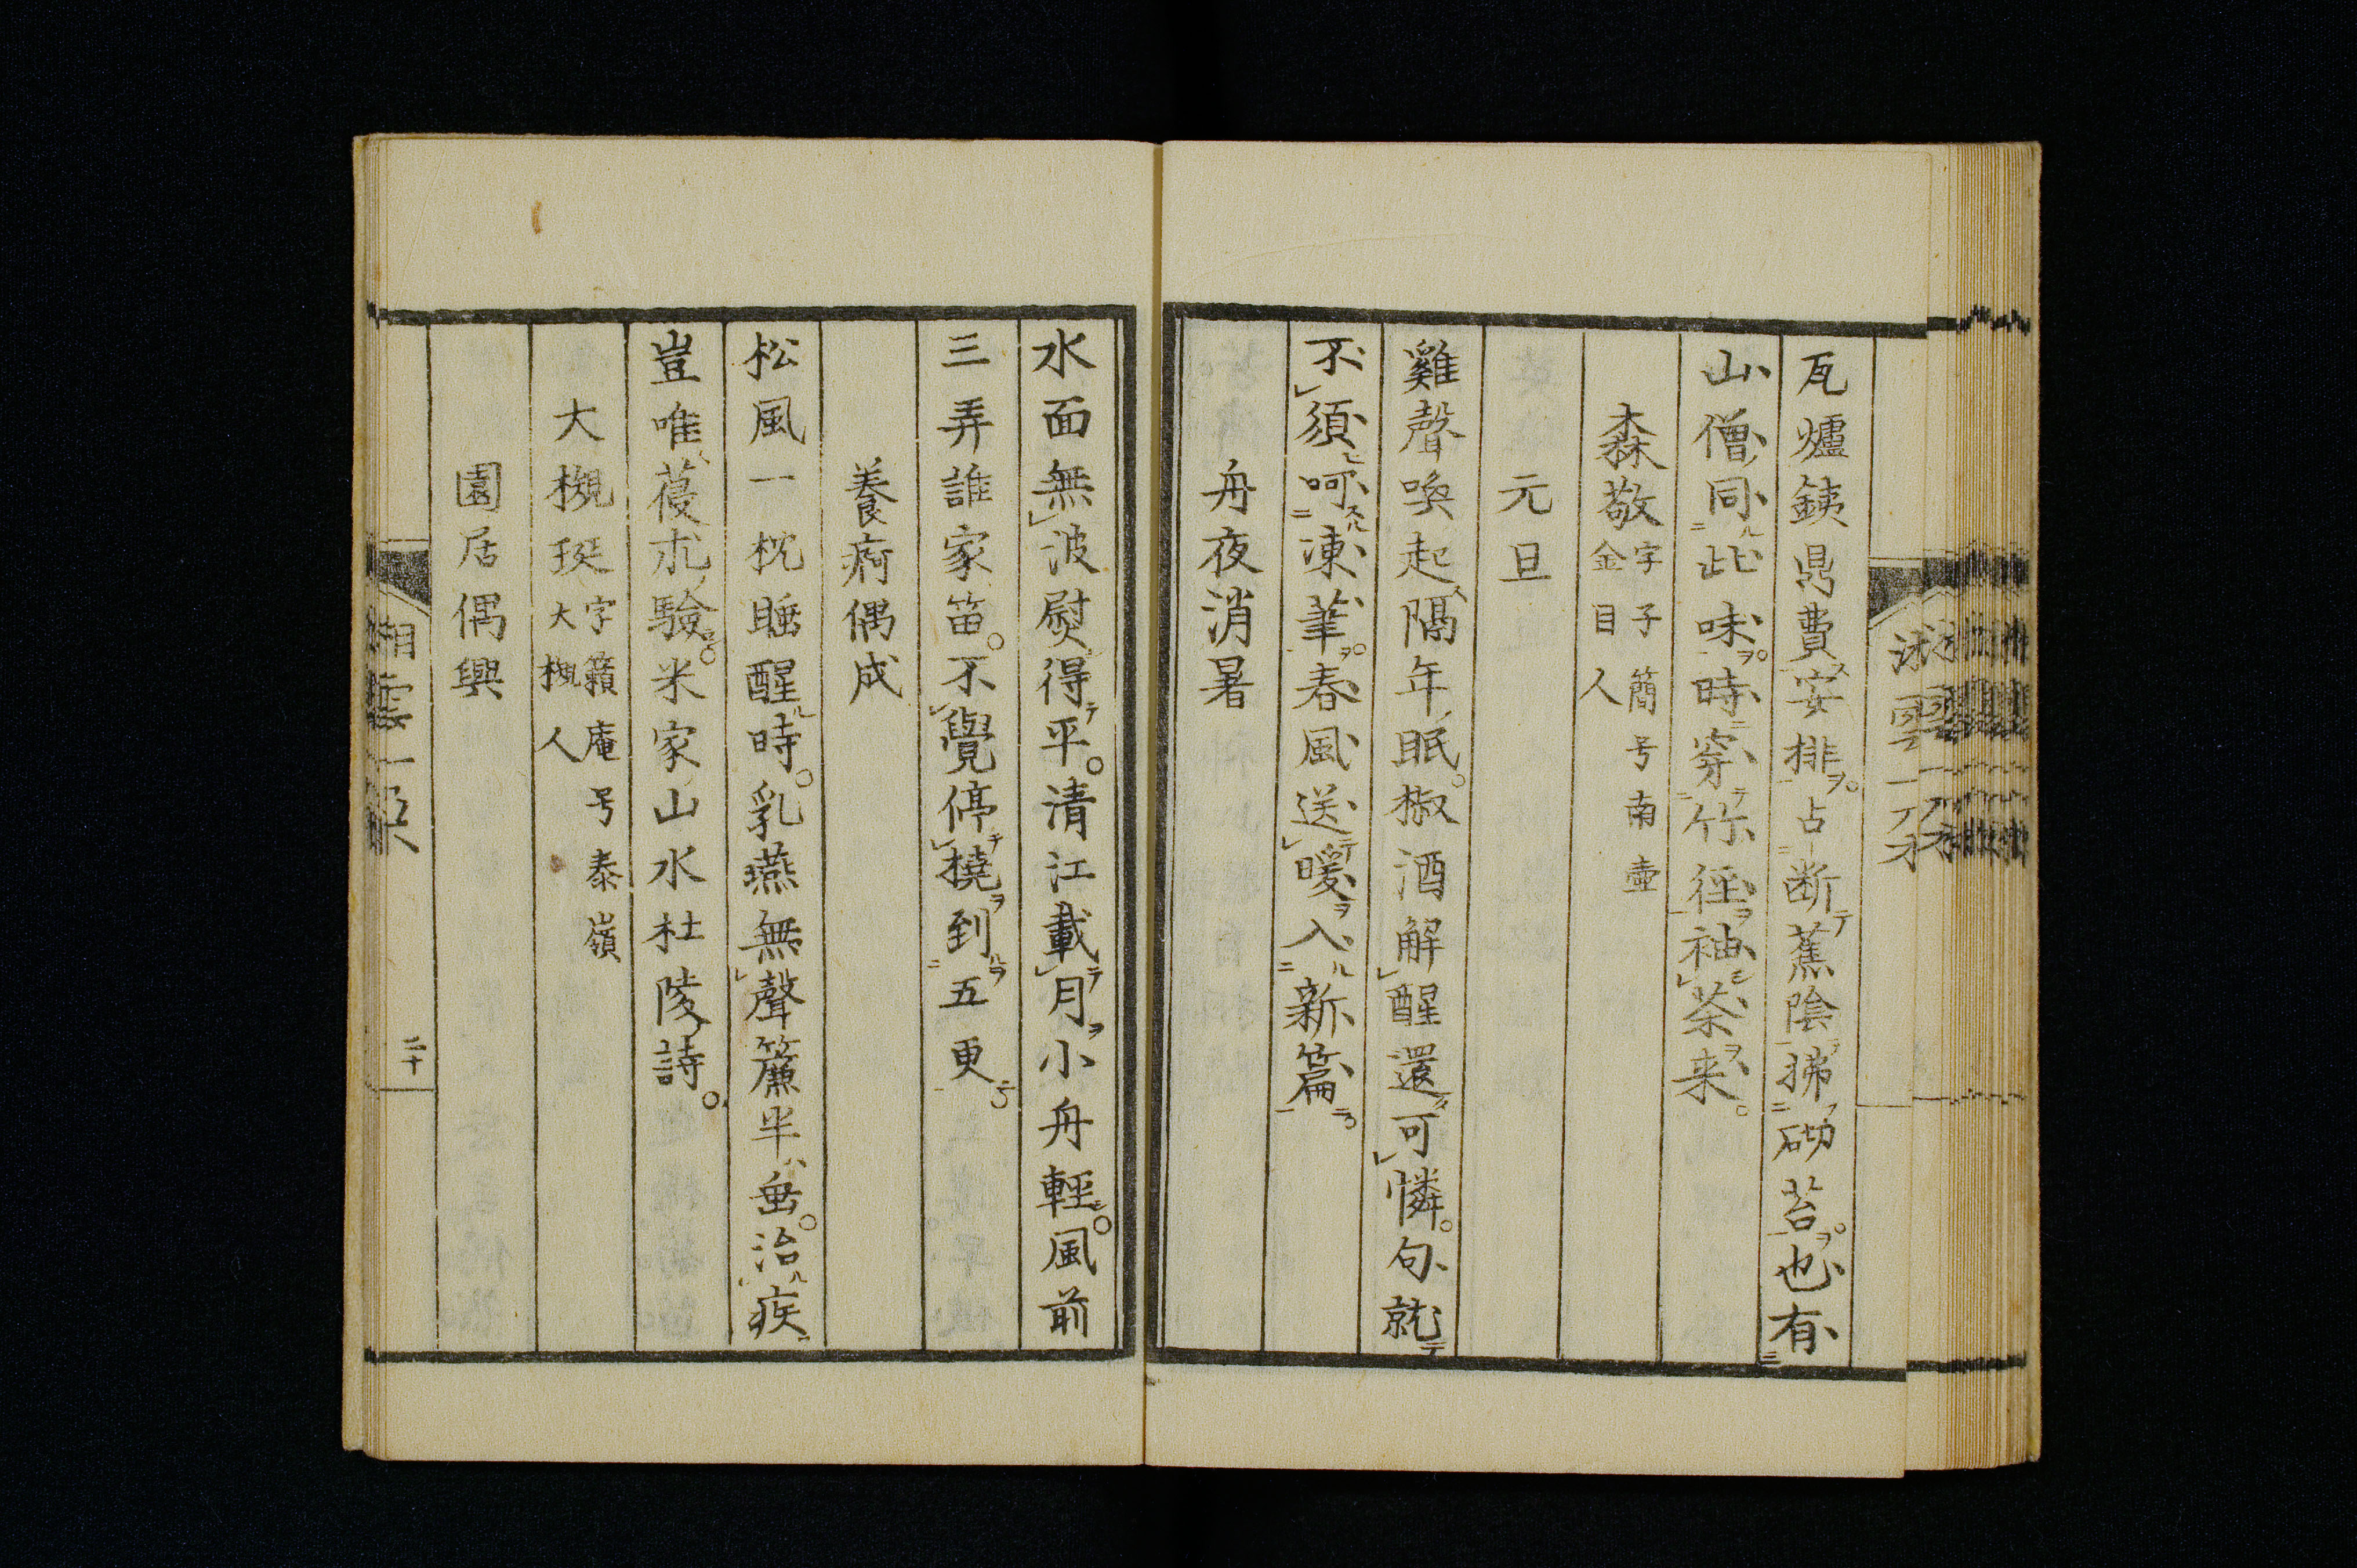 瓦爐銕鼎費安排占断蕉陰拂砌苔也有
山僧同此味時穿竹徑袖茶来
森敬
字子簡号南壷
金目人
元旦
雞聲喚起隔年眠椒酒解醒還可憐句就
不須呵凍筆春風送暖入新篇
舟夜消暑
水面無波熨得平清江載月小舟輕風前
三弄誰家笛不覺停橈到五更
養痾偶成
松風一枕睡醒時乳燕無聲簾半垂治疾
豈唯葠朮驗米家山水杜陵詩
大槻珽
字籟庵号泰嶺
大槻人
園居偶興
二十